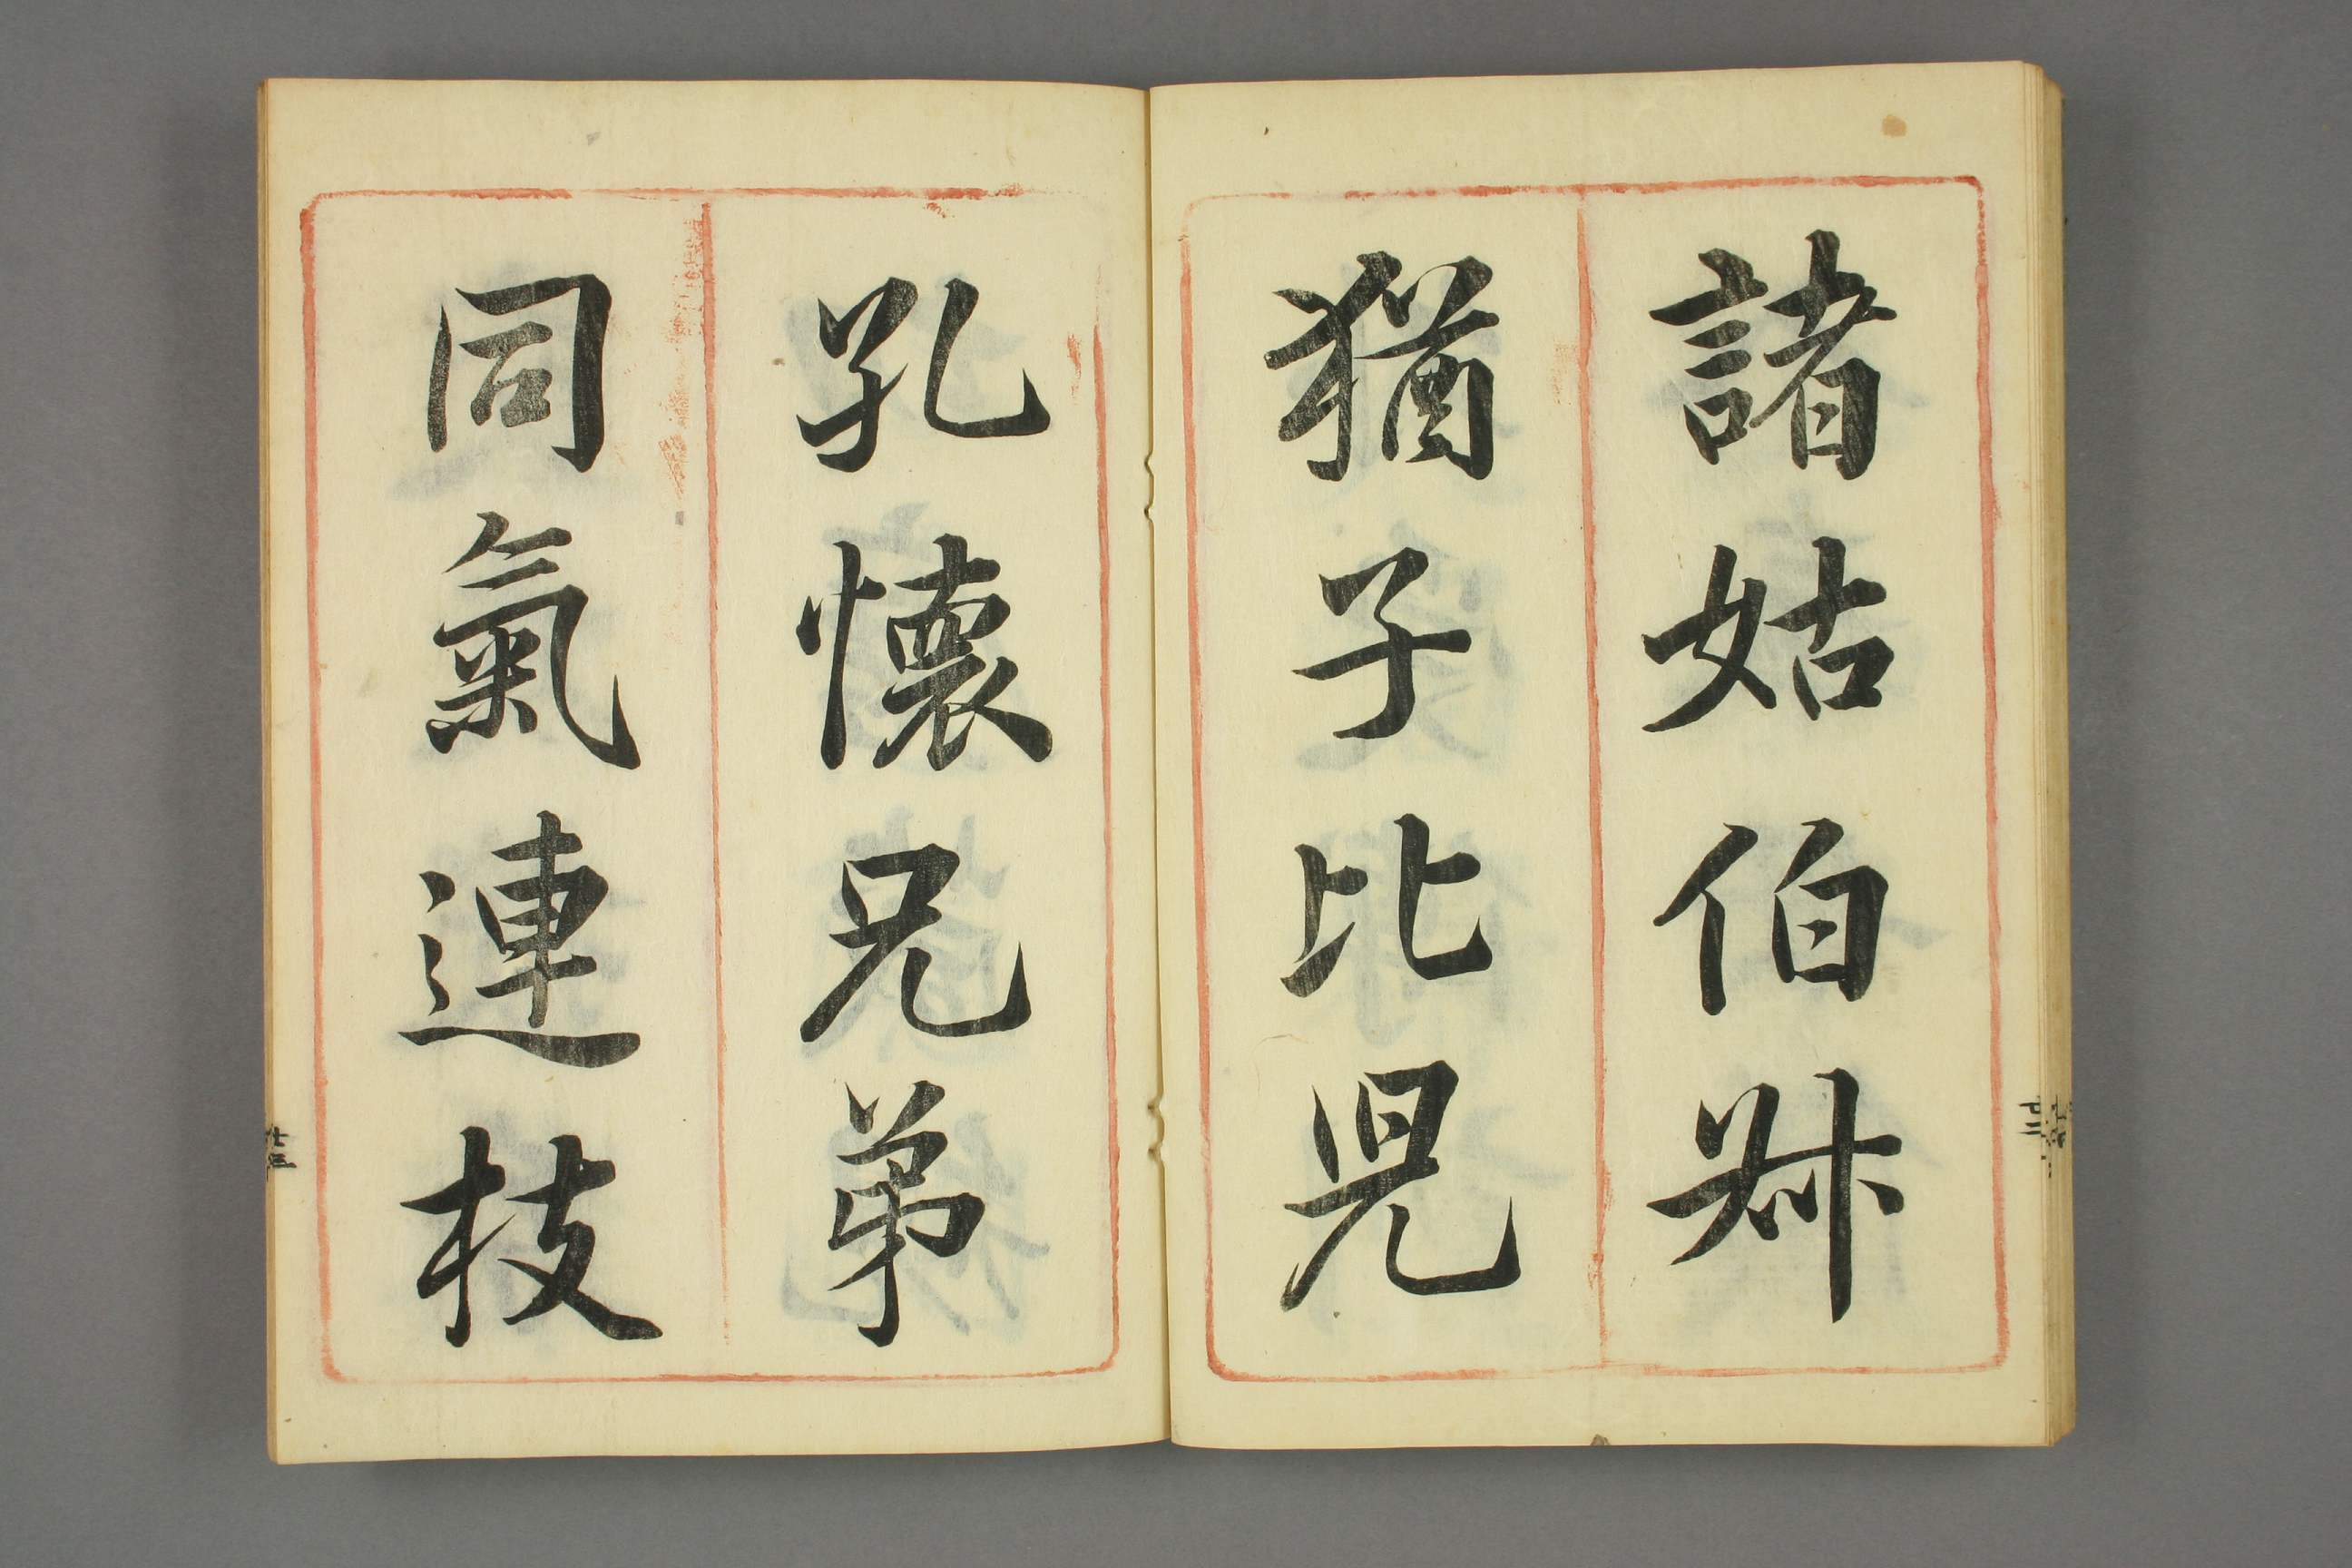 諸姑伯叔
猶子比兒
孔懷兄弟
同氣連枝